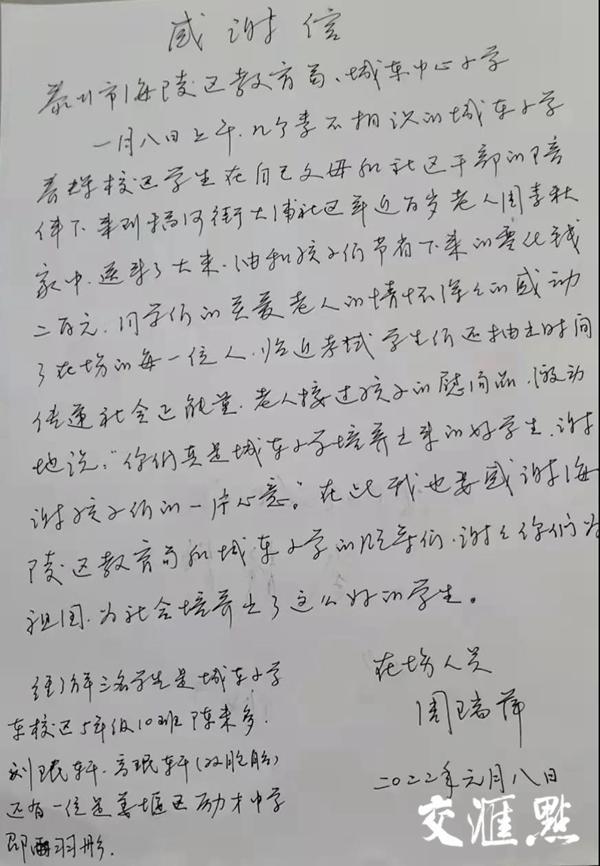 感谢信
泰州市海陵区教育局、城东中心小学
一月八日上午,几个素不相识的城东小学
春晖校区学生在自己父母和社区干部的陪
伴下来到搞河街大浦社区年近百岁老人周李秋
家中,送来了大米、油和孩子们节省下来的零花钱
二百元,同学们的关爱老人的情怀深深的感动
了在场的每一位人,临近考试学生们还抽出时间
传递社会正能量,老人接过孩子的慰问品,激动
地说:“你们真是城东小学培养出来的好学生,谢
谢孩子们的一片心意。”在此我也要感谢海
陵区教育局和城东小学的领导们,谢谢你们为
祖国、为社会培养出了这么好的学生。
经了解三名学生是城东小学
东校区5年级10班陈来多,
刘珉轩、高珉轩(双胞胎)
还有一位是姜堰区励才中学
邵雨羽彤.
在场人员
周瑞萍
二〇二二年元月八日
交汇點